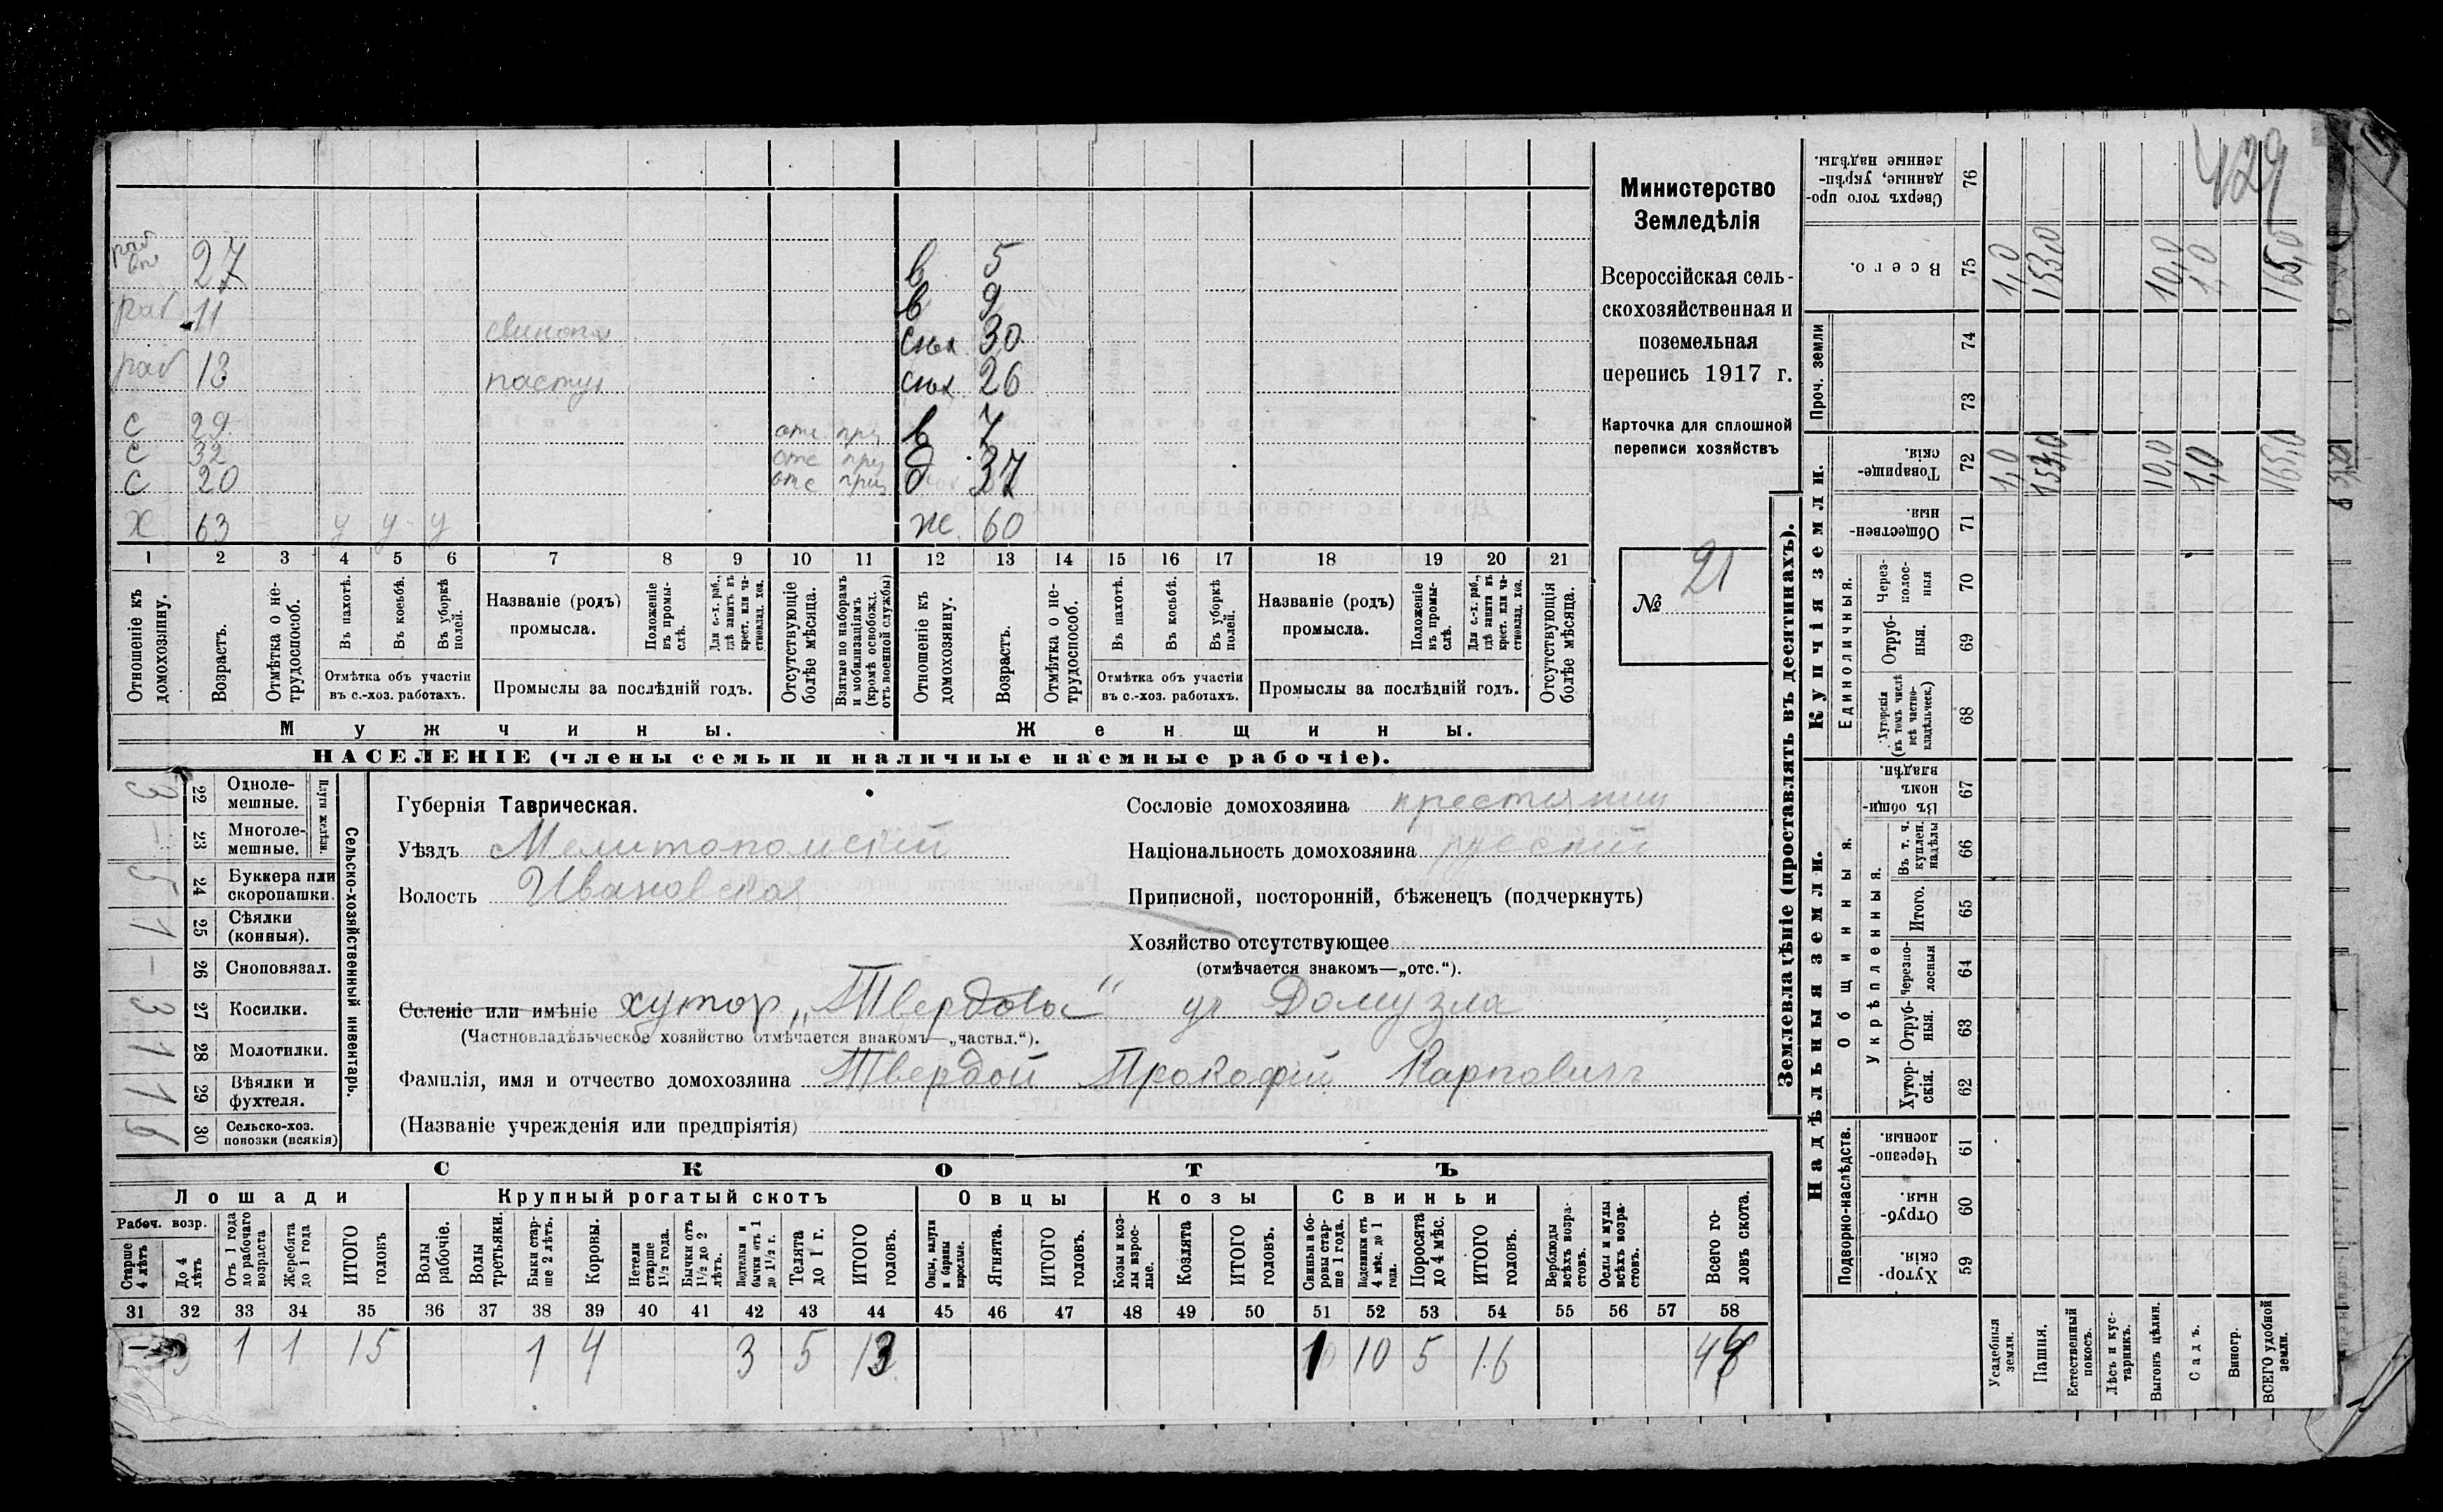 429
Министерство
Земледѣлія
Всероссійская сель-
скохозяйственная и
поземельная
перепись 1917 г.
Карточка для сплошной
переписи хозяйствъ
№ 21
раб 27
раб 11
раб 13 пастух
с 29 отс приз
с 32 отс приз
с 20 отс приз
х 63 у у у
в 5
в 9
снох 30
снох 26
в 7
д 37
ж 60
1 2 3 4 5 6 7 8 9 10 11 12 13 14 15 16 17 18 19 20 21
Отношеніе къ домохозяину.
Возрастъ.
Отмѣтка о не-трудоспособ.
Въ пахотѣ.
Въ косьбѣ.
Въ уборкѣ полей.
Отмѣтка объ участіи
въ с.-хоз. работахъ.
Названіе (родъ)
промысла.
Положеніе въ промы-слѣ.
Для с.-х. раб., гдѣ занятъ въ крест. или ча-стновлад. хоз.
Промыслы за послѣдній годъ.
Отсутствующіе болѣе мѣсяца.
Взятые по наборамъ и мобилизаціямъ (кромѣ освобожд. отъ военной службы)
Отношеніе къ домохозяину.
Возрастъ.
Отмѣтка о не-трудоспособ.
Въ пахотѣ.
Въ косьбѣ.
Въ уборкѣ полей.
Отмѣтка объ участіи
въ с.-хоз. работахъ.
Названіе (родъ)
промысла.
Положеніе въ промы-слѣ.
Для с.-х. раб., гдѣ занята въ крест. или ча-стновлад. хоз.
Промыслы за послѣдній годъ.
Отсутствующія болѣе мѣсяца.
Мужчины. Женщины.
НАСЕЛЕНІЕ (члены семьи и наличные наемные рабочіе).
Сельско-хозяйственный инвентарь.
Плуги желѣзн.
22 Одноле-мешные. 3
23 Многоле-мешные. –
24 Буккера или скоропашки. 5
25 Сѣялки (конныя). 1
26 Сноповязал. –
27 Косилки. 3
28 Молотилки. 1
29 Вѣялки и фухтеля. 1
30 Сельско-хоз. повозки (всякія) 6
Губернія Таврическая.
Уѣздъ Мелитопольскій
Волость Ивановская
Сословіе домохозяина крестьянин
Національность домохозяина русский
Приписной, посторонній, бѣженецъ (подчеркнуть)
Хозяйство отсутствующее
(отмѣчается знакомъ—„отс.“).
Селеніе или имѣніе хутор „Твердова“ ур Домузла
(Частновладѣльческое хозяйство отмѣчается знакомъ—„частвл.“).
Фамилія, имя и отчество домохозяина Твердой Прокофий Карпович
(Названіе учрежденія или предпріятія)
СКОТЪ
Лошади Крупный рогатый скотъ Овцы Козы Свиньи
Рабоч. возр.
Старше 4 лѣтъ
До 4 лѣтъ
Отъ 1 года до рабочаго возраста
Жеребята до 1 года
ИТОГО головъ
Волы рабочіе.
Волы третьяки.
Быки стар-ше 2 лѣтъ.
Коровы.
Нетели старше 1½ года.
Бычки отъ 1½ до 2 лѣтъ.
Подтелки и бычки отъ 1 до 1½ г.
Телята до 1 г.
ИТОГО головъ.
Овцы, валухи и бараны взрослые.
Ягнята.
ИТОГО головъ.
Козы и коз-лы взрос-лые.
Козлята
ИТОГО головъ.
Свиньи и бо-ровы стар-ше 1 года.
Подсвинки отъ 4 мѣс. до 1 года.
Поросята до 4 мѣс.
ИТОГО головъ.
Верблюды всѣхъ возра-стовъ.
Ослы и мулы всѣхъ возра-стовъ.
Всего го-ловъ скота.
31 32 33 34 35 36 37 38 39 40 41 42 43 44 45 46 47 48 49 50 51 52 53 54 55 56 57 58
1 1 15 1 4 3 5 13 1 10 5 16
Землевладѣніе (проставлять въ десятинахъ).
Надѣльныя земли. Купчія земли. Проч. земли
Подворно-наслѣдств.
Общинныя.
Укрѣпленныя.
Единоличныя.
59 Хутор-скія.
60 Отруб-ныя.
61 Черезпо-лосныя.
62 Хутор-скія.
63 Отруб-ныя.
64 Черезпо-лосныя
65 Итого.
66 Въ т. ч. куплен. надѣлы
67 Въ общин-номъ владѣн.
68 Хуторскія (въ томъ числѣ всѣ частно-владѣльческ.)
69 Отруб-ныя.
70 Через-полос-ныя
71 Обществен-ныя.
72 Товарище-скія. 1,0 153,0 10,0 1,0 165,0
73
74
75 Всего. 1,0 153,0 10,0 1,0 165,0
76 Сверхъ того про-данные, укрѣп-ленные надѣлы.
Усадебныя земли.
Пашня.
Естественный покосъ.
Лѣсъ и кус-тарникъ.
Выгонъ цѣлин.
Садъ.
Виногр.
ВСЕГО удобной земли.